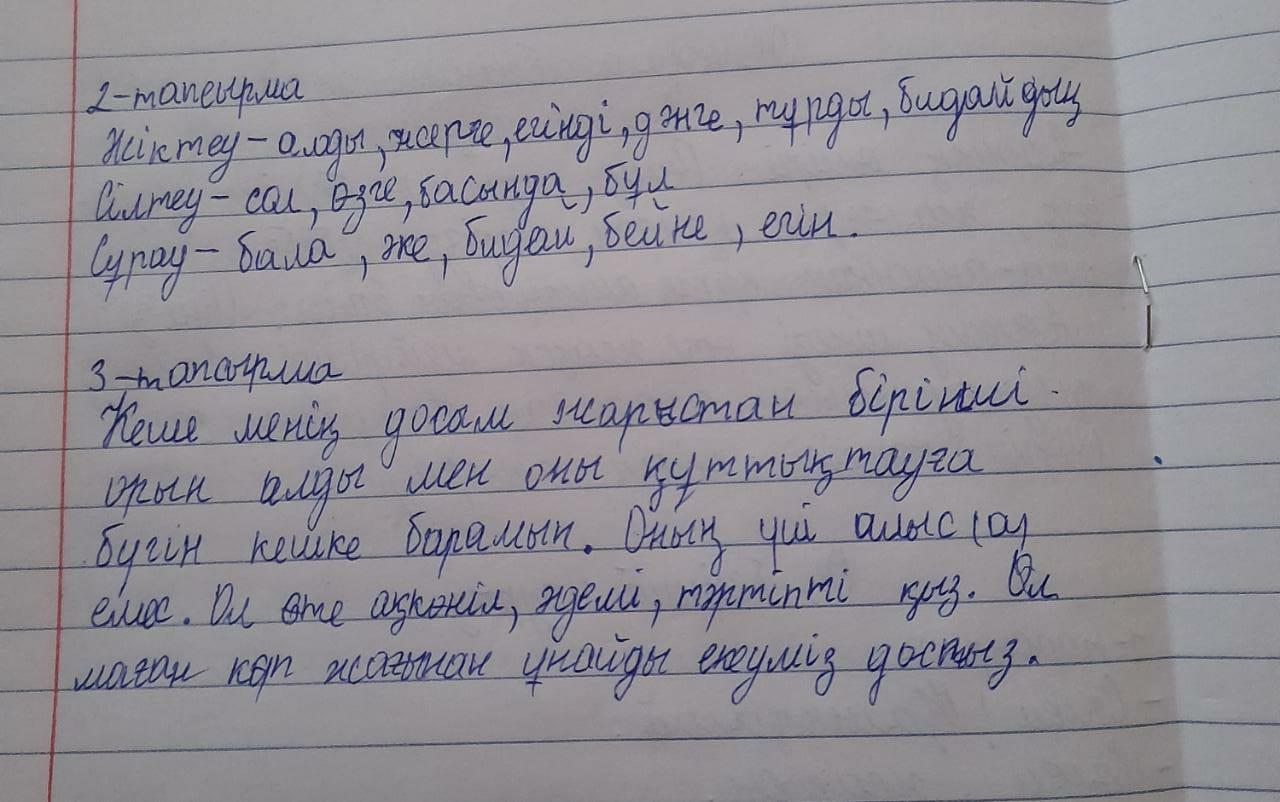 2-тапсырма
Жіктеу - алды, жерге, егінді, дәнге, тұрды, бидайдың
Сілтеу - сол, өзге, басында, бұл
Сұрау - бала, же, бидай, бейне, егін.
3-тапсырма
Кеше менің досам жарыстан бірінші
орын алды мен оны құттықтауға
бүгін кешке барамын. Оның үйі алыс
емес. Ол өте ақкөніл, әдемі, тәртіпті қыз. Ол
маған көп жағынан ұнайды екеуміз достыз.